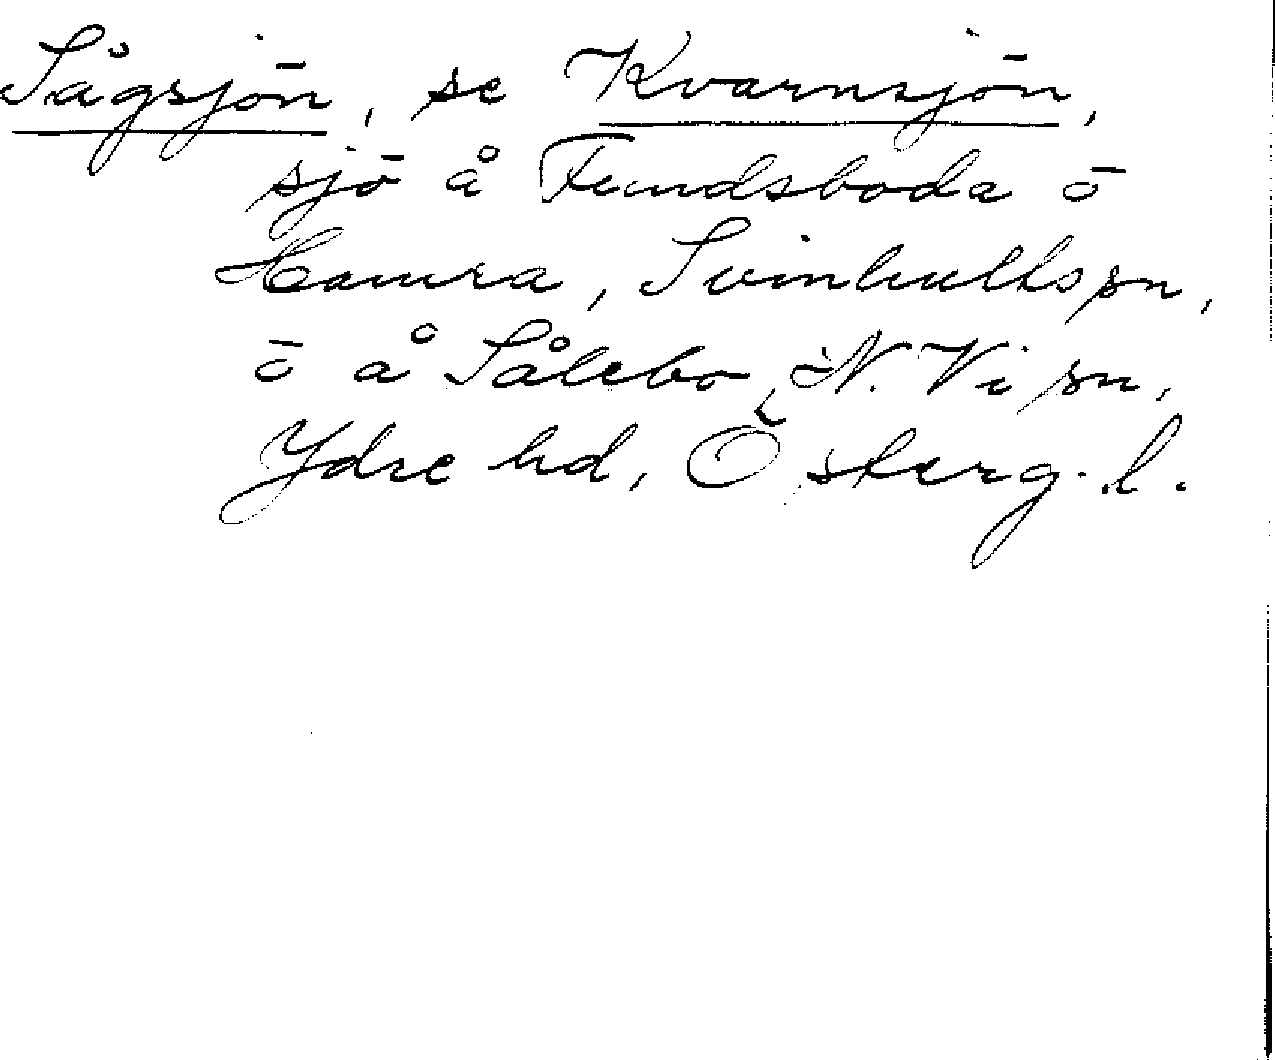 Sågsjön, se Kvarnsjön,
sjö å Fundsboda o
Hamra, Svinhults sn,
o å Sålebo, N. Vi sn,
Ydre hd, Österg. l.